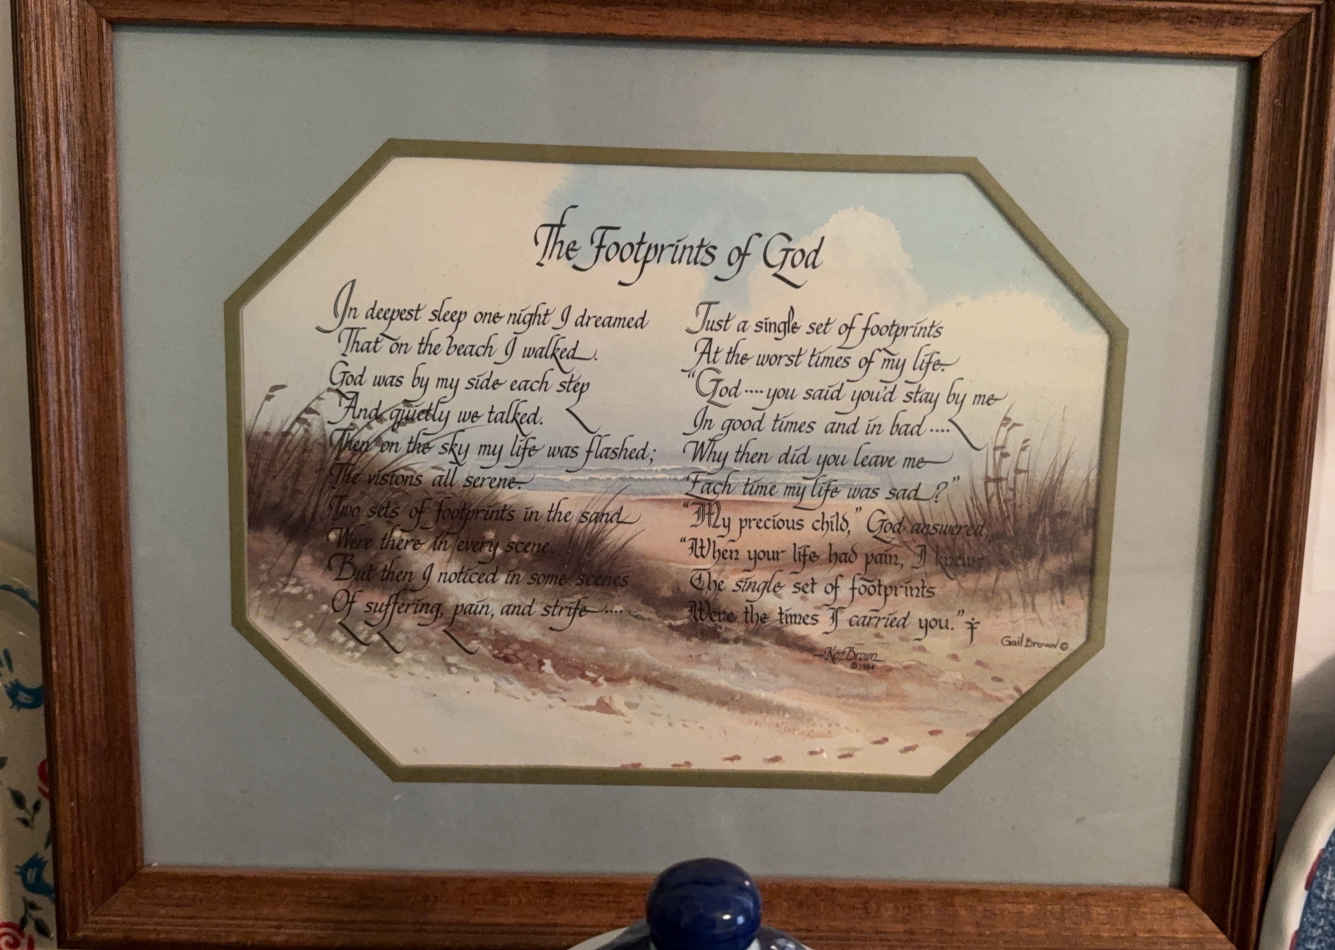 The Footprints of God
In deepest sleep one night I dreamed
That on the beach I walked.
God was by my side each step
And quietly we talked.
Then on the sky my life was flashed;
The visions all serene.
Two sets of footprints in the sand
Were there in every scene.
But then I noticed in some scenes
Of suffering, pain, and strife ....
Just a single set of footprints
At the worst times of my life.
"God .... you said you'd stay by me
In good times and in bad ....
Why then did you leave me
Each time my life was sad?"
"My precious child," God answered,
"When your life had pain, I knew
The single set of footprints
Were the times I carried you."
Ken Brown
© 1984
Gail Brown ©